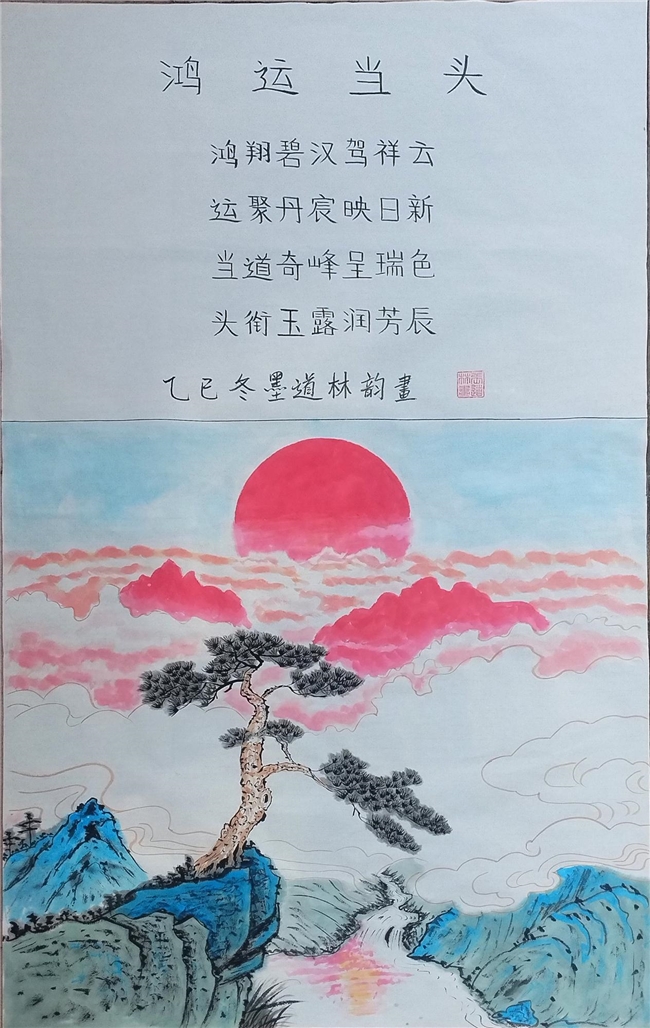 鸿运当头
鸿翔碧汉驾祥云
运聚丹宸映日新
当道奇峰呈瑞色
头衔玉露润芳辰
乙巳冬墨道林韵畫